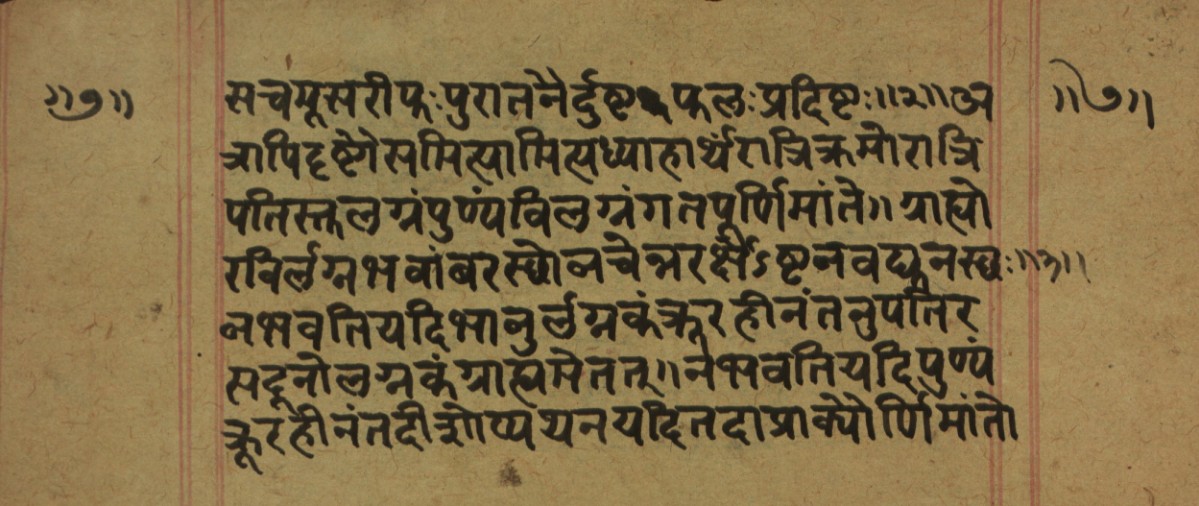 ॥७॥ सचमूसरीफः पुरातनैर्दुष्टफलः प्रदिष्टः ॥२॥ अ ॥७॥
त्रापि दृष्टगे समित्यामित्यध्याहार्यं रात्रिक्रमो रात्रि
पतिस्तलग्नं पुण्यं विलग्नं गतपूर्णिमांते ॥ ग्राह्यो
रविर्लग्नभवांबरस्थो न चेन्नरर्क्षेऽष्टनवद्यूनस्थः ॥३॥
न भवति यदि भानुर्लग्नकं क्रूरहीनं तनुपतिर
सदूनो लग्नकं ग्राह्यमेतत् ॥ न भवति यदि पुण्यं
क्रूरहीनं तदीशोप्यथ न यदि तदा प्राक्पौर्णिमांतो